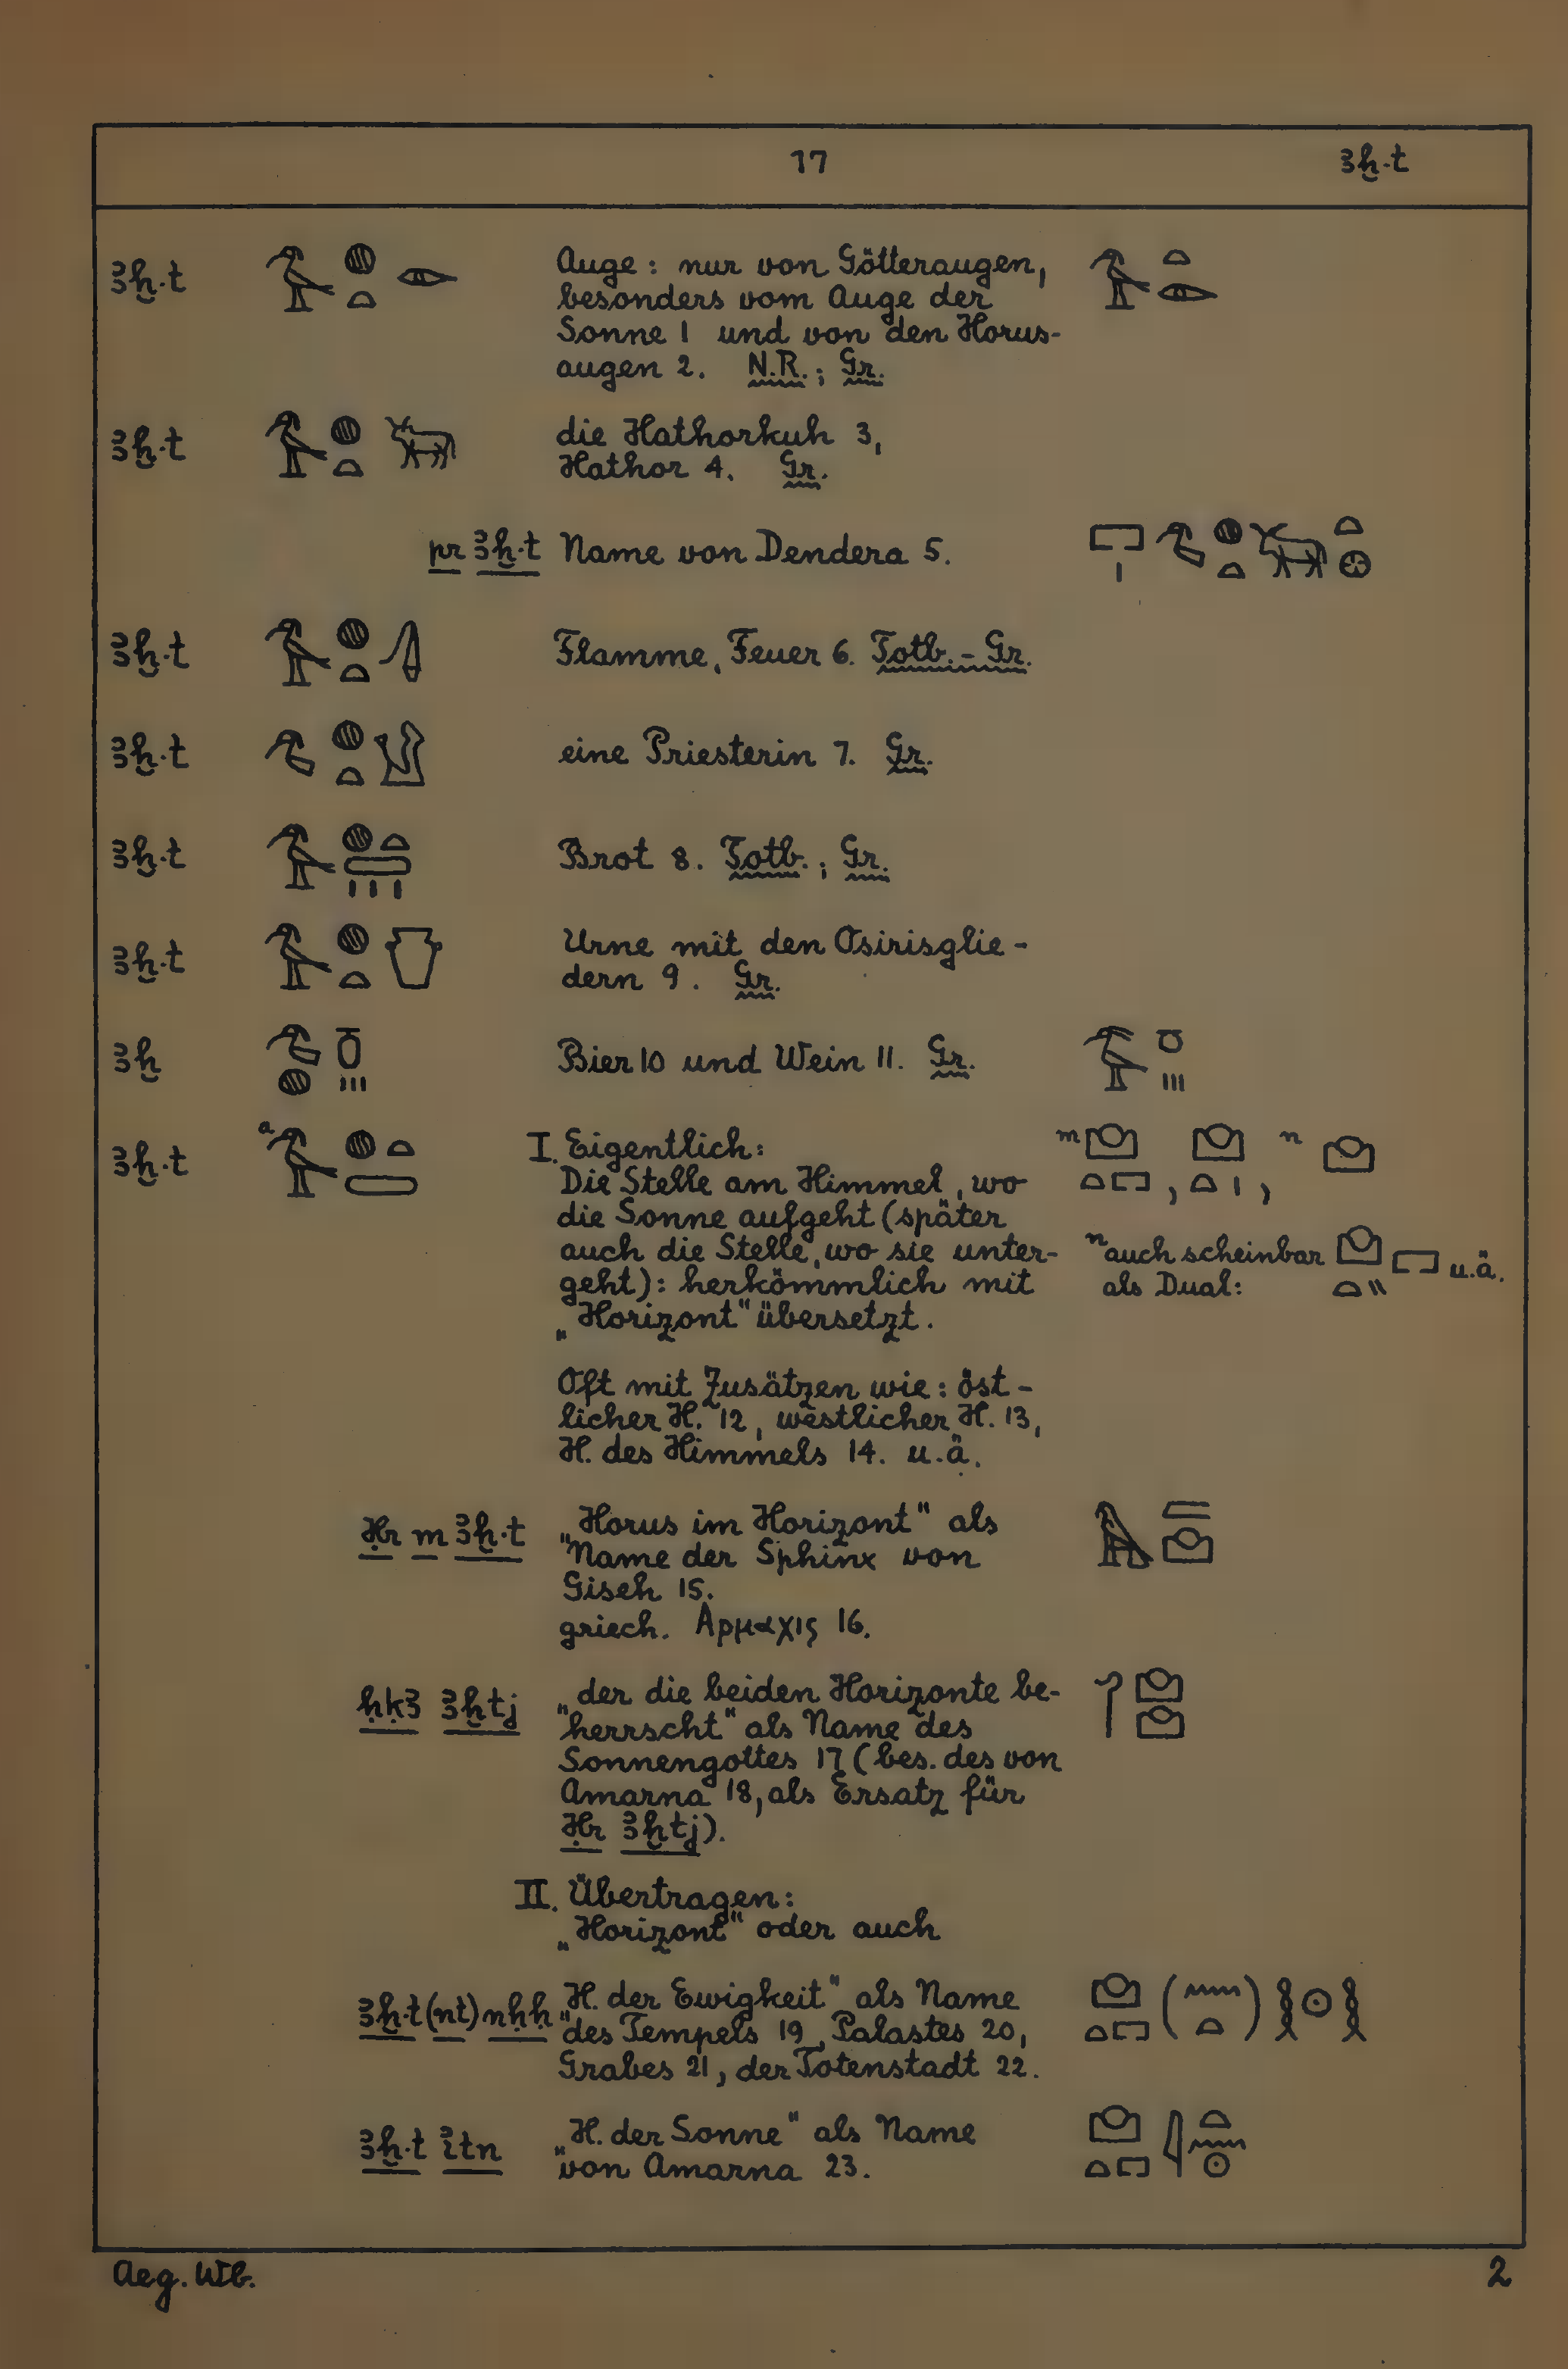 17 ꜣḫ.t
ꜣḫ.t Auge: nur von Götteraugen,
besonders vom Auge der
Sonne 1 und von den Horus-
augen 2. N.R.; Gr.
ꜣḫ.t die Hathorkuh 3,
Hathor 4. Gr.
pr ꜣḫ.t Name von Dendera 5.
ꜣḫ.t Flamme, Feuer 6. Totb. - Gr.
ꜣḫ.t eine Priesterin 7. Gr.
ꜣḫ.t Brot 8. Totb.; Gr.
ꜣḫ.t Urne mit den Osirisglie-
dern 9. Gr.
ꜣḫ Bier 10 und Wein 11. Gr.
ꜣḫ.t a I. Eigentlich: m , , n
Die Stelle am Himmel, wo
die Sonne aufgeht (später
auch die Stelle, wo sie unter-
geht): herkömmlich mit
„Horizont" übersetzt.
n auch scheinbar u.ä.
als Dual:
Oft mit Zusätzen wie: öst-
licher H. 12, westlicher H. 13,
H. des Himmels 14. u.ä.
Ḥr m ꜣḫ.t „Horus im Horizont" als
Name der Sphinx von
Giseh 15.
griech. Αρμαχις 16.
ḥḳꜣ ꜣḫtj „der die beiden Horizonte be-
herrscht" als Name des
Sonnengottes 17 (bes. des von
Amarna 18, als Ersatz für
Ḥr ꜣḫtj).
II. Übertragen:
„Horizont" oder auch
ꜣḫ.t (nt) nḥḥ „H. der Ewigkeit" als Name
des Tempels 19, Palastes 20,
Grabes 21, der Totenstadt 22.
ꜣḫ.t ı͗tn „H. der Sonne" als Name
von Amarna 23.
Aeg. Wb. 2